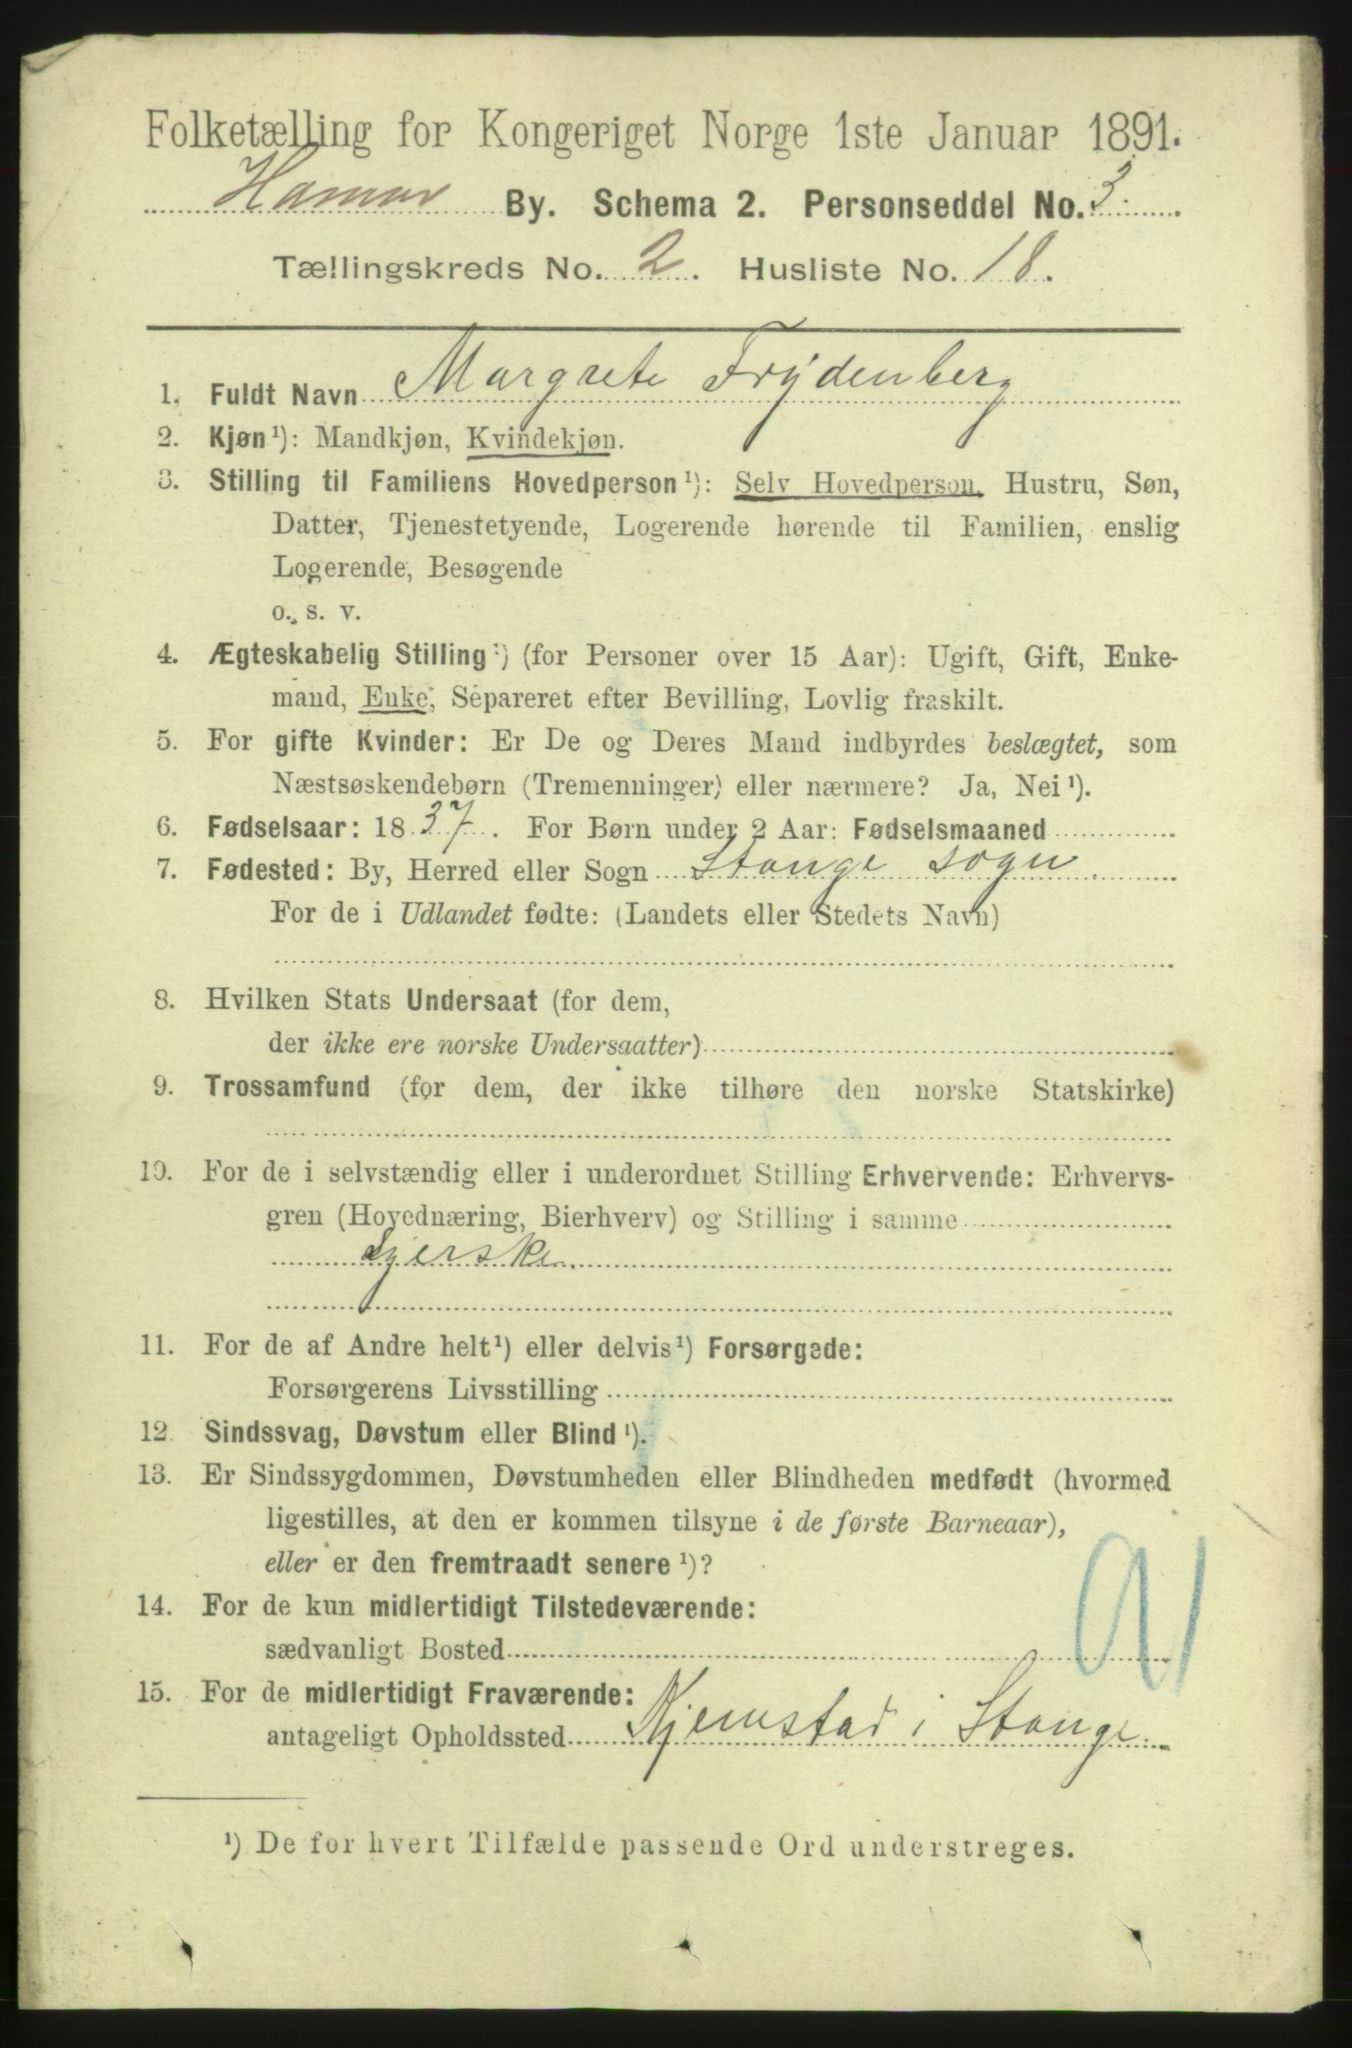 Folketælling for Kongeriget Norge 1ste Januar 1891.
Hamar By. Schema 2. Personseddel No. 3.
Tællingskreds No. 2. Husliste No. 18.
1. Fuldt Navn Margrete Frydenberg
2. Kjøn¹): Mandkjøn, Kvindekjøn.
3. Stilling til Familiens Hovedperson¹): Selv Hovedperson, Hustru, Søn,
Datter, Tjenestetyende, Logerende hørende til Familien, enslig
Logerende, Besøgende
o. s. v.
4. Ægteskabelig Stilling¹) (for Personer over 15 Aar): Ugift, Gift, Enke-
mand, Enke, Separeret efter Bevilling, Lovlig fraskilt.
5. For gifte Kvinder: Er De og Deres Mand indbyrdes beslægtet, som
Næstsøskendebørn (Tremenninger) eller nærmere? Ja, Nei¹).
6. Fødselsaar: 1837. For Børn under 2 Aar: Fødselsmaaned
7. Fødested: By, Herred eller Sogn Stange sogn.
For de i Udlandet fødte: (Landets eller Stedets Navn)
8. Hvilken Stats Undersaat (for dem,
der ikke ere norske Undersaatter)
9. Trossamfund (for dem, der ikke tilhøre den norske Statskirke)
10. For de i selvstændig eller i underordnet Stilling Erhvervende: Erhvervs-
gren (Hovednæring, Bierhverv) og Stilling i samme
11. For de af Andre helt¹) eller delvis¹) Forsørgede:
Forsørgerens Livsstilling
12. Sindssvag, Døvstum eller Blind¹).
13. Er Sindssygdommen, Døvstumheden eller Blindheden medfødt (hvormed
ligestilles, at den er kommen tilsyne i de første Barneaar),
eller er den fremtraadt senere¹)?
14. For de kun midlertidigt Tilstedeværende:
sædvanligt Bosted
15. For de midlertidigt Fraværende:
antageligt Opholdssted Kjemstad i Stange.
¹) De for hvert Tilfælde passende Ord understreges.